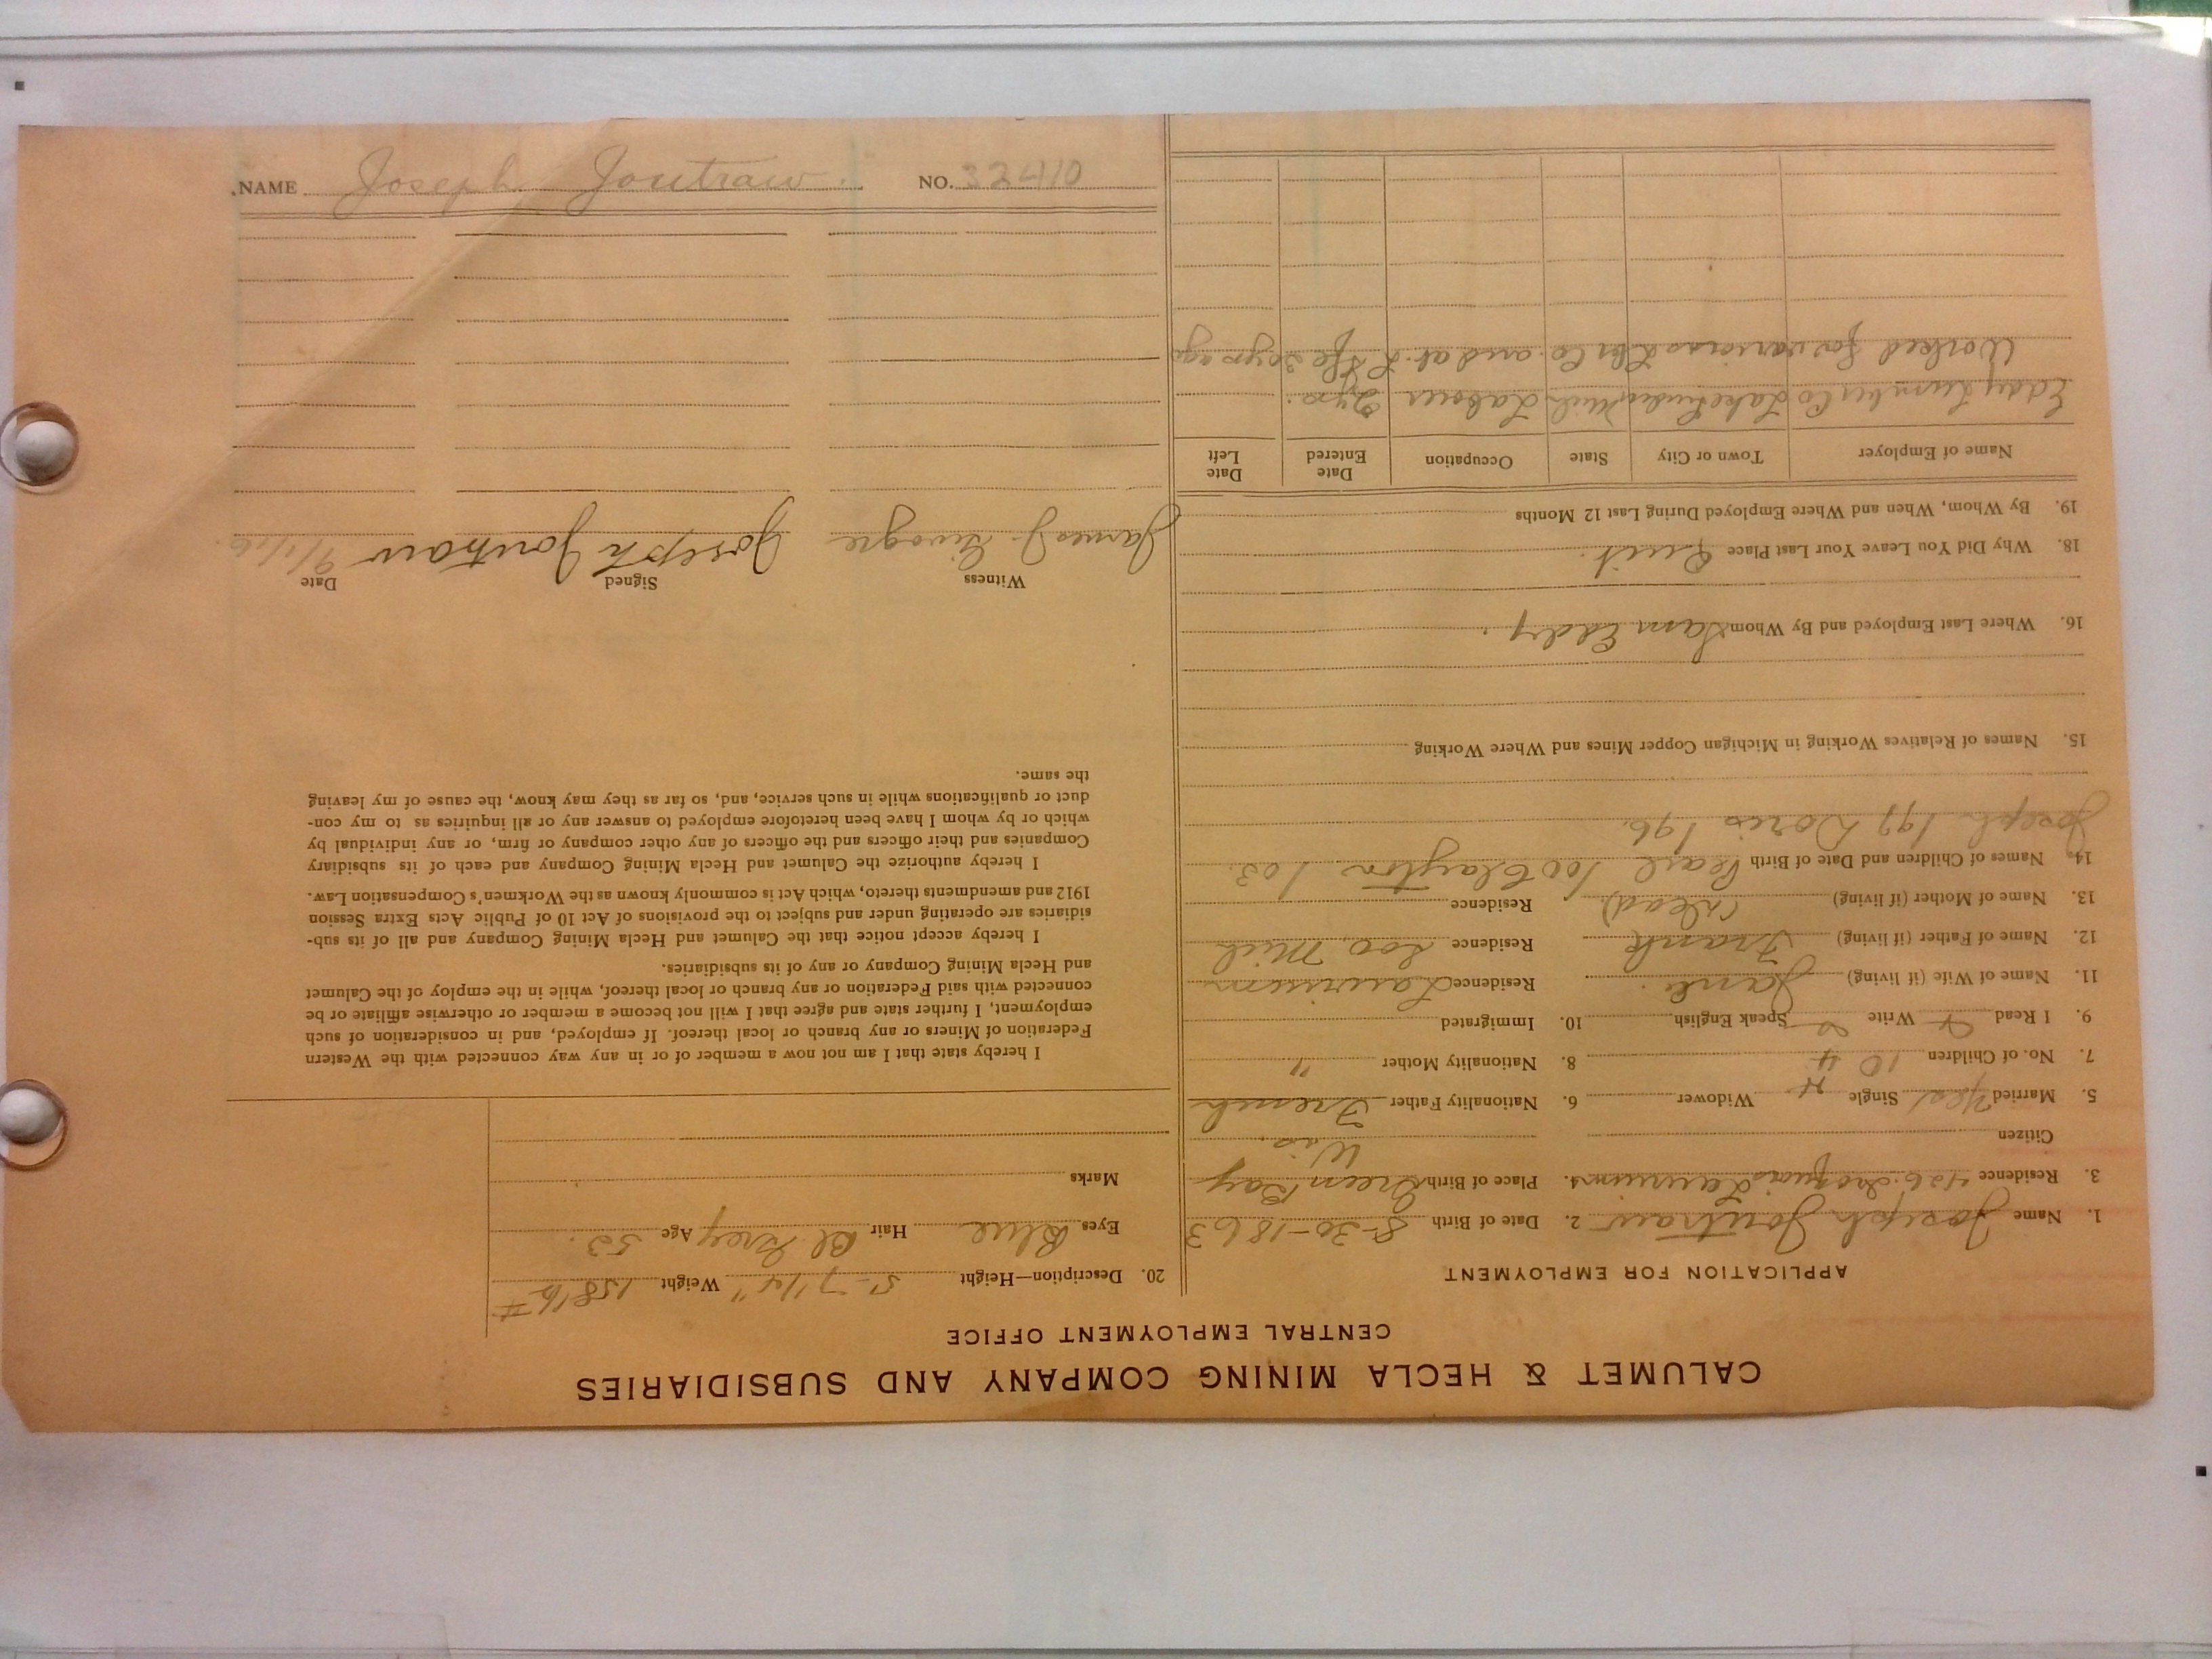 CALUMET & HECLA MINING COMPANY AND SUBSIDIARIES
CENTRAL EMPLOYMENT OFFICE
APPLICATION FOR EMPLOYMENT
1. Name Joseph Joutraw 2. Date of Birth 8-30-1863
3. Residence 426 Iroquois Laurium 4. Place of Birth Green Bay
Citizen Wis.
5. Married Yes Single Widower 6. Nationality Father French
7. No. of Children 10 4 8. Nationality Mother "
9. I Read Write Speak English 10. Immigrated
11. Name of Wife (if living) Jane. Residence Laurium
12. Name of Father (if living) Frank Residence Soo, Mich
13. Name of Mother (if living) (dead) Residence
14. Names of Children and Date of Birth Pearl 100 Clayton 103.
Joseph 197 Doris 196.
15. Names of Relatives Working in Michigan Copper Mines and Where Working
16. Where Last Employed and By Whom Sam Eddy.
18. Why Did You Leave Your Last Place Quit.
19. By Whom, When and Where Employed During Last 12 Months
Name of Employer Town or City State Occupation Date Entered Date Left
Eddy Lumber Co Lake Linden Mich Labour 2 yrs.
Worked for various Lbr Co. and at 20 yrs ago
20. Description—Height 5-7 1/4" Weight 158 lb #
Eyes Blue Hair Bl. Grey Age 53.
Marks
I hereby state that I am not now a member of or in any way connected with the Western
Federation of Miners or any branch or local thereof. If employed, and in consideration of such
employment, I further state and agree that I will not become a member or otherwise affiliate or be
connected with said Federation or any branch or local thereof, while in the employ of the Calumet
and Hecla Mining Company or any of its subsidiaries.
I hereby accept notice that the Calumet and Hecla Mining Company and all of its sub-
sidiaries are operating under and subject to the provisions of Act 10 of Public Acts Extra Session
1912 and amendments thereto, which Act is commonly known as the Workmen's Compensation Law.
I hereby authorize the Calumet and Hecla Mining Company and each of its subsidiary
Companies and their officers and the officers of any other company or firm, or any individual by
which or by whom I have been heretofore employed to answer any or all inquiries as to my con-
duct or qualifications while in such service, and, so far as they may know, the cause of my leaving
the same.
Witness Signed Date
James J. Joseph Joutraw 9/1/16.
NAME Joseph Joutraw. NO. 32410